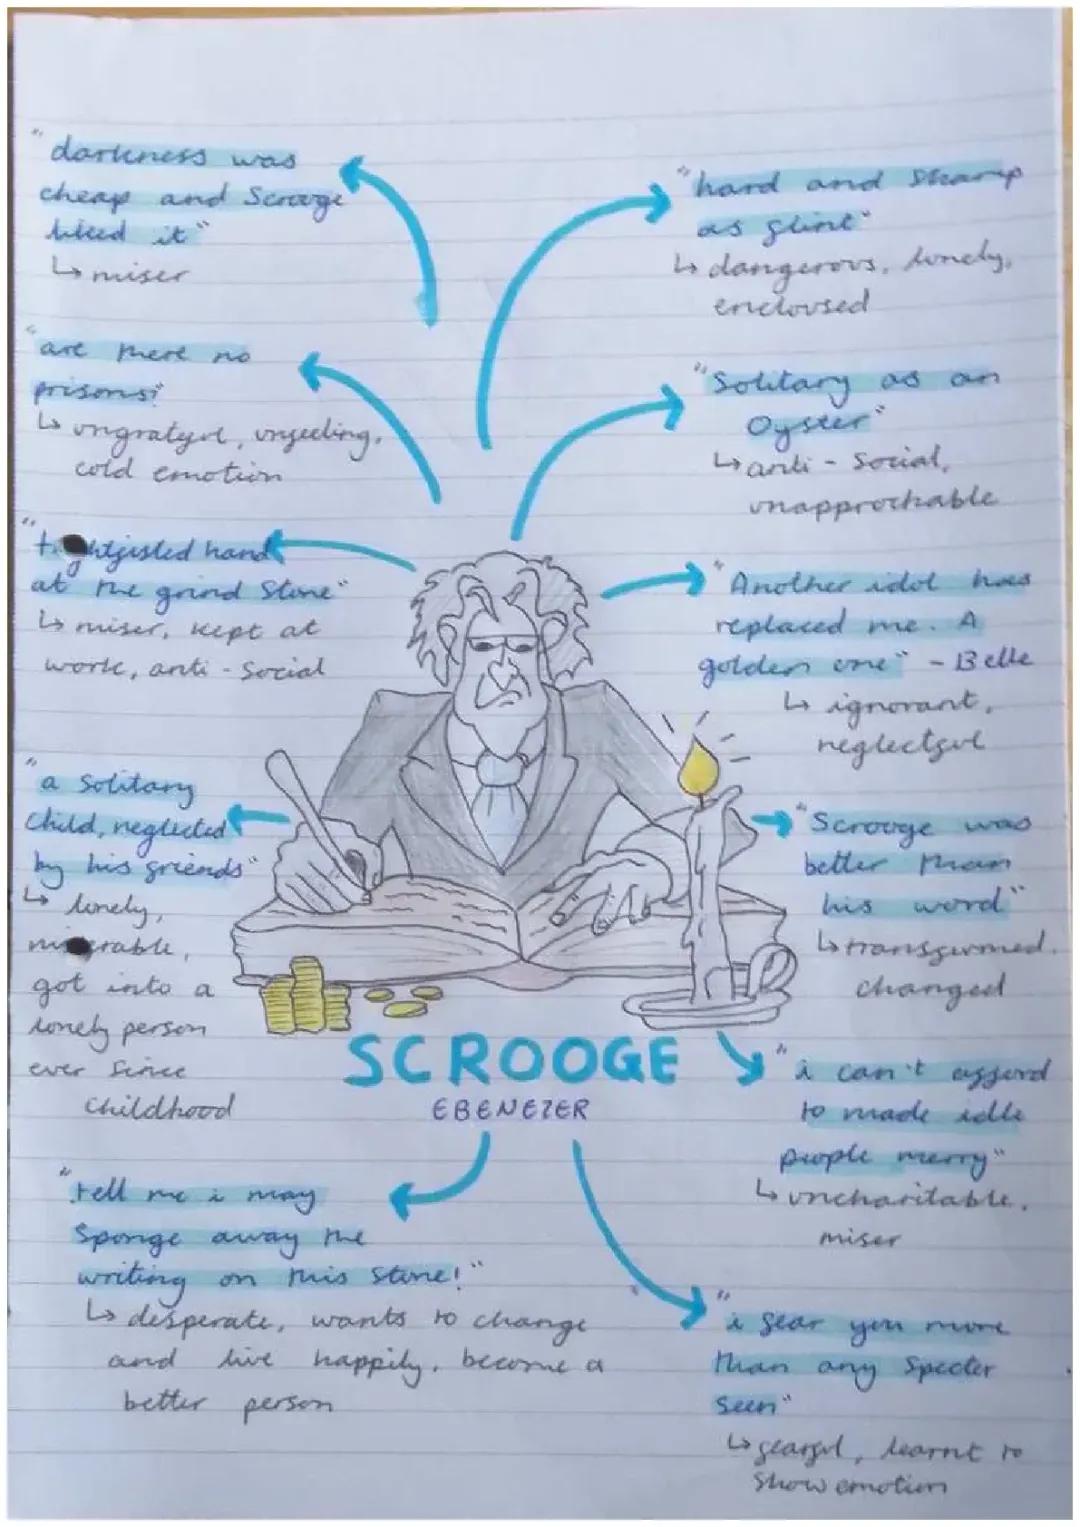 "darkness was
cheap and Scrooge
liked it"
↳ miser
"are there no
prisons?"
↳ ungrateful, unfeeling,
cold emotion
hand
at the grind Stone"
↳ miser, kept at
work, anti - Social
"a Solitary
child, neglected
by his friends"
↳ lonely,
got into a
lonely person
ever since
childhood
"hard and Sharp
as flint"
↳ dangerous, lonely,
encloused
"Solitary as an
Oyster"
↳ anti - Social,
unapprochable
"Another idol has
replaced me. A
golden one" - Belle
↳ ignorant,
neglectful
"Scrooge was
better than
his word"
↳ transformed,
changed
SCROOGE
EBENEZER
"i can't afford
to made idle
people merry"
↳ uncharitable,
miser
"tell me i may
Sponge away the
writing on this Stone!"
↳ desperate, wants to change
and live happily, become a
better person
"i fear you more
than any Specter
Seen"
↳ fearful, learnt to
Show emotion